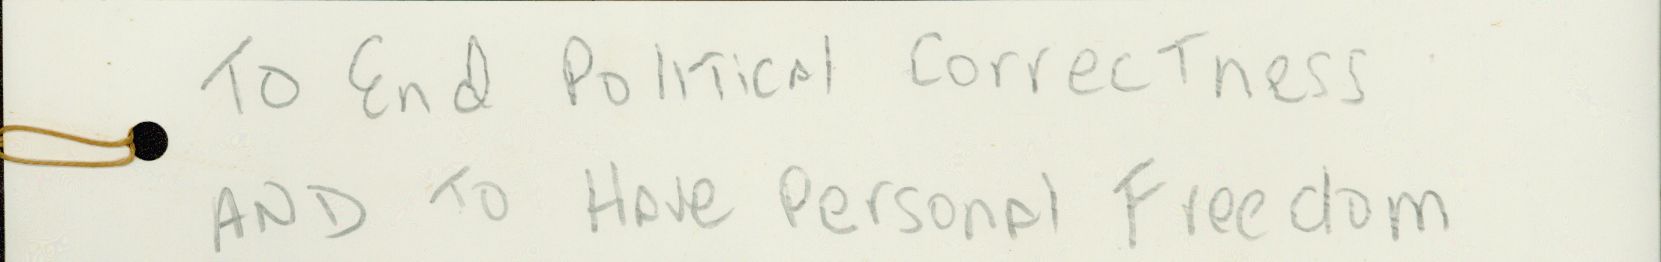 To End Political Correctness
AND To Have Personal Freedom